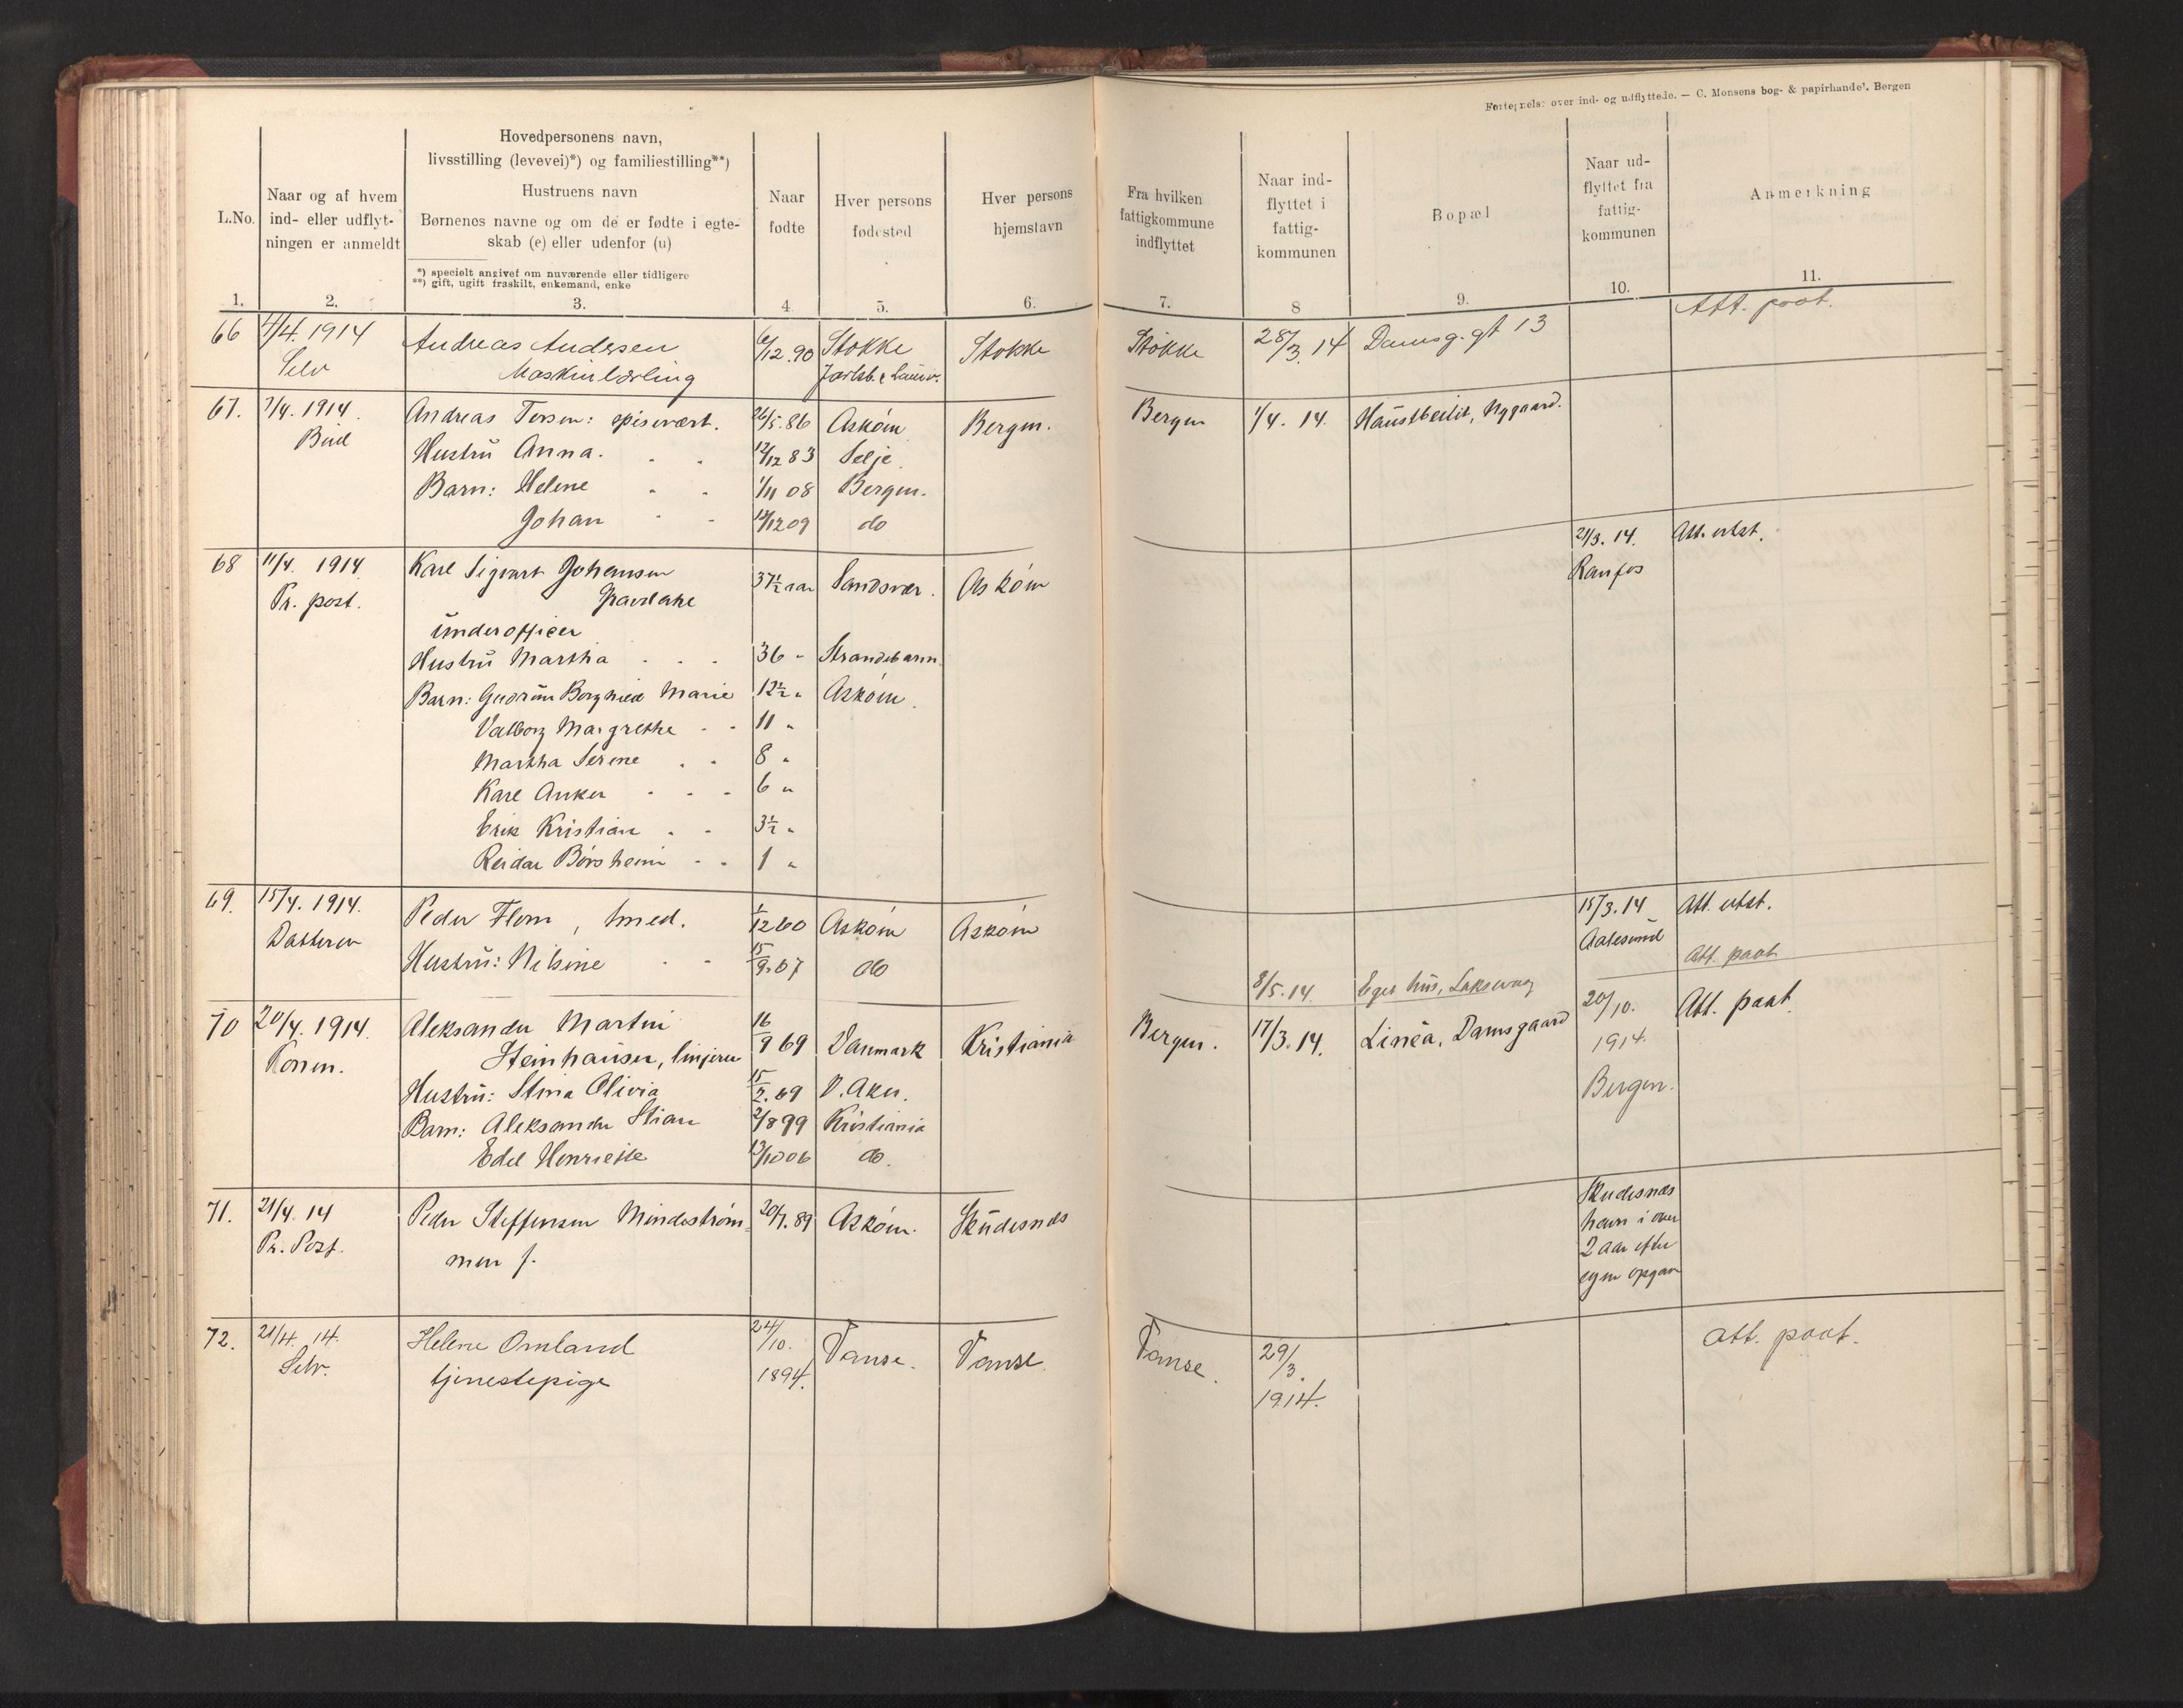 Fortegnelse over ind- og udflyttede. — C. Monsens bog- & papirhandel. Bergen
L.No.
1.
Naar og af hvem
ind- eller udflyt-
ningen er anmeldt
2.
Hovedpersonens navn,
livsstilling (levevei)*) og familiestilling**)
Hustruens navn
Børnenes navne og om de er fødte i egte-
skab (e) eller udenfor (u)
*) specielt angivet om nuværende eller tidligere
**) gift, ugift fraskilt, enkemand, enke
3.
Naar
fødte
4
Hver persons
fødested
5.
Hver persons
hjemstavn
6.
Fra hvilken
fattigkommune
indflyttet
7.
Naar ind-
flyttet i
fattig-
kommunen
8
Bopæl
9.
Naar ud-
flyttet fra
fattig-
kommunen
10.
Anmerkning
11.
66 4/4. 1914 Andreas Andersen 6/12.90 Stokke Stokke Stokke 28/3.14 Damsg.gt 13 Att. paat.
Selv Maskinlærling Jarlsb. & Laurv.
67. 7/4. 1914. Andreas Terson: spisevært. 26/5.86 Askøin Bergen. Bergen 1/4. 14. Haustbeilit, Nygaard.
Hustrü Anna. 12/12 83 Selje.
Barn: Helene 1/11 08 Bergen.
Johan 12/12 09 do
68 11/4. 1914 Karl Sigvart Johansen 37½ aar Sandsvær. Askøin 21/3. 14. Att. utst.
Pr. post. Ranfos
ünderofficer
Hustrü Martha 36 " Strandebarm.
Barn: Gudrün Borghild Marie 12½ " Askøin.
Valborg Margrethe 11 "
Martha Serine 8 "
Karl Anker 6 "
Erik Kristian 3½ "
Reidar Børsheim 1 "
69. 15/4. 1914. Peder Flem, smed. 1/12 60 Askøin Askøin 15/3.14 Att. utst.
Datteren Aalesund
Hustrü: Nilsine 15/9.67 do Att. paat
8/5.14 Eget hüs, Laksevaag
70 20/4. 1914. Aleksander Martin 16/9 69 Danmark Kristiania Bergen. 17/3.14. Linea, Damsgaard 20/10. Att. paat.
Konen. Steinhauser, linjerer 1914.
Hustrü: Stina Olivia 15/2.69 V. Aker. Bergen.
Barn: Aleksander Stian 2/8 99 Kristiania
Edel Henriette 13/10 06 do.
71. 21/4. 14 Peder Steffensen Mindestrøm- 20/7.89 Askøin. Sküdesnes Skudesnes
Pr. Post. men f. havn i over
2 aar efter
egen opgav
72. 21/4. 14. Helene Omland 24/10. Vanse. Vanse. Vanse. 29/3. Att. paat.
Selv. tjenestepige 1894. 1914.